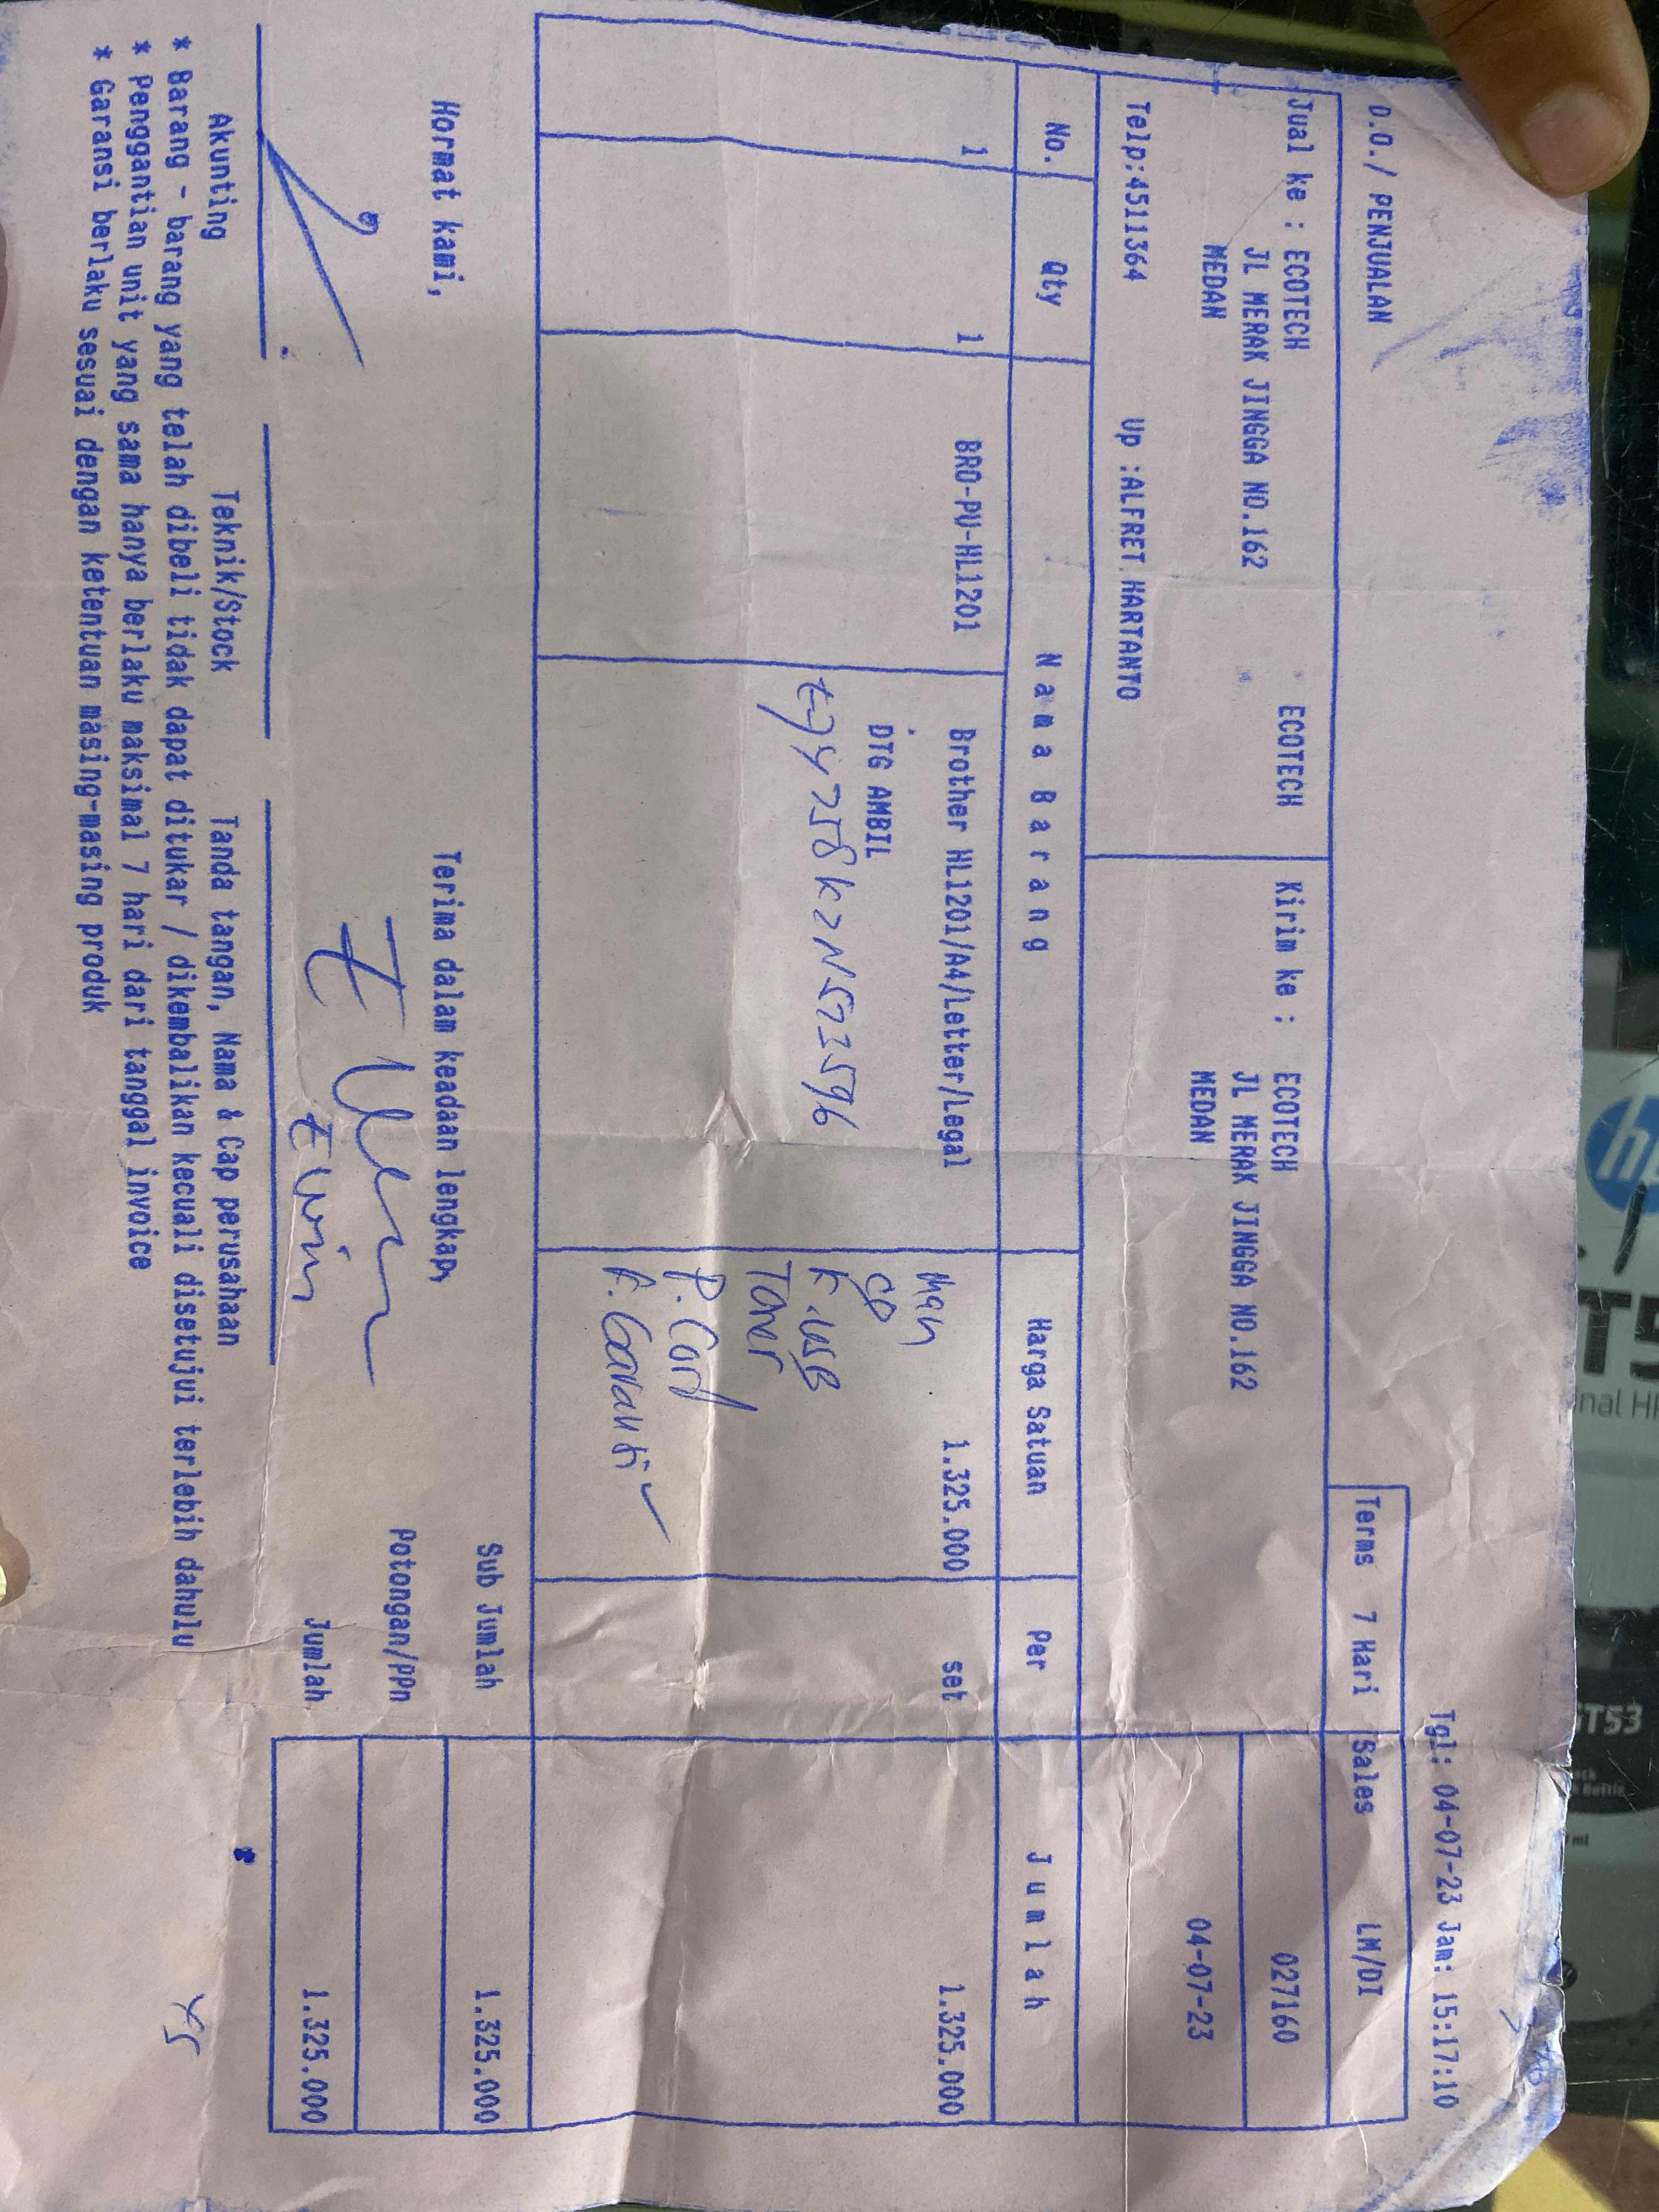 Tgl: 04-07-23 Jam: 15:17:10
D.O./ PENJUALAN
Terms 7 Hari Sales LM/DI
Jual ke : ECOTECH ECOTECH Kirim ke : ECOTECH 027160
JL MERAK JINGGA NO.162 JL MERAK JINGGA NO.162
MEDAN MEDAN 04-07-23
Telp:4511364 Up :ALFRET HARTANTO
No. Qty Nama Barang Harga Satuan Per Jumlah
1 1 BRO-PU-HL1201 Brother HL1201/A4/Letter/Legal 1.325.000 set 1.325.000
DTG AMBIL
CD
K.USB
Toner
P.Card
K.Garansi
Hormat kami, Terima dalam keadaan lengkap, Sub Jumlah 1.325.000
Potongan/PPn
Erwin
Jumlah 1.325.000
Akunting Teknik/Stock Tanda tangan, Nama & Cap perusahaan
* Barang - barang yang telah dibeli tidak dapat ditukar / dikembalikan kecuali disetujui terlebih dahulu
* Penggantian unit yang sama hanya berlaku maksimal 7 hari dari tanggal invoice
* Garansi berlaku sesuai dengan ketentuan masing-masing produk
hp